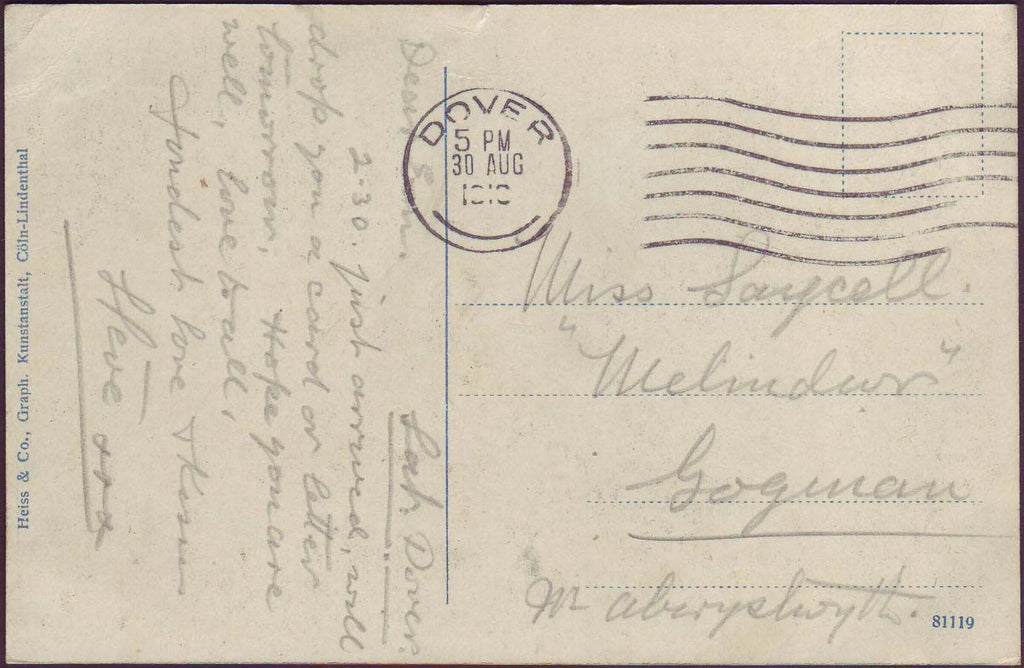 Dear Em. Sat. Dover.
2-30. just arrived, will
drop you a card or letter
tomorrow, Hope you are
well, love to all,
Fondest love + kisses
Steve
DOVER
5 PM
30 AUG
Miss Saycell.
"Melindwr"
Gogman
Nr aberystwyth.
81119
Heiss & Co., Graph. Kunstanstalt, Cöln-Lindenthal